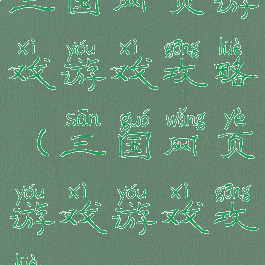 三国网页游
xì yóu xì gōng lüè
戏游戏攻略
sān guó wǎng yè
（三国网页
yóu xì yóu xì gōng
游戏游戏攻
lüè